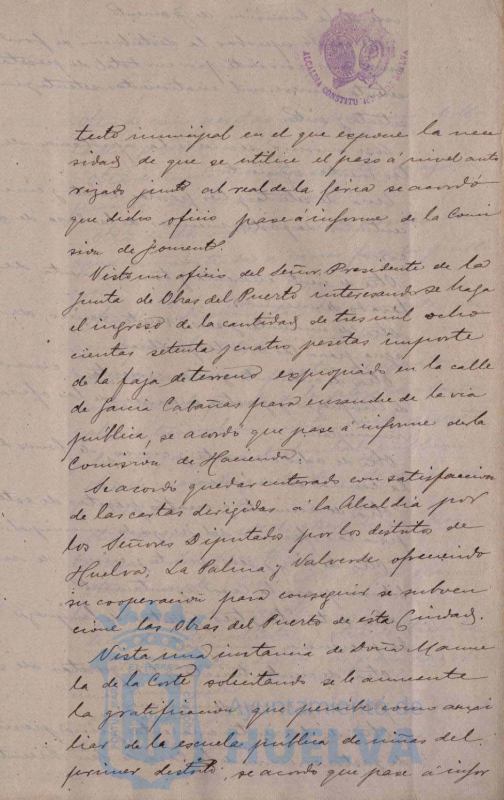 ALCALDIA CONSTITUCIONAL HUELVA
tecto municipal en el que expone la nece
sidad de que se utilice el paso á nivel auto
rizado junto al real de la feria se acordó
que dicho oficio pase á informe de la Comi
sion de Fomento.
Visto un oficio del Señor Presidente de la
Junta de Obras del Puerto interesando se haga
el ingreso de la cantidad de tres mil ocho
cientas setenta y cuatro pesetas importe
de la faja de terreno expropiado en la calle
de Garcia Cabañas para ensanche de la via
pública, se acordó que pase á informe de la
Comision de Hacienda.
Se acordó quedar enterado con satisfaccion
de las cartas dirigidas á la Alcaldia por
los Señores Diputados por los distritos de
Huelva, La Palma y Valverde ofreciendo
su cooperacion para conseguir se subven
cione las Obras del Puerto de ésta Ciudad.
Vista una instancia de Doña Manue
la de la Corte solicitando se le aumente
la gratificacion que percibe como auxi
liar de la escuela publica de niñas del
primer distrito, se acordó que pase á infor
HUELVA